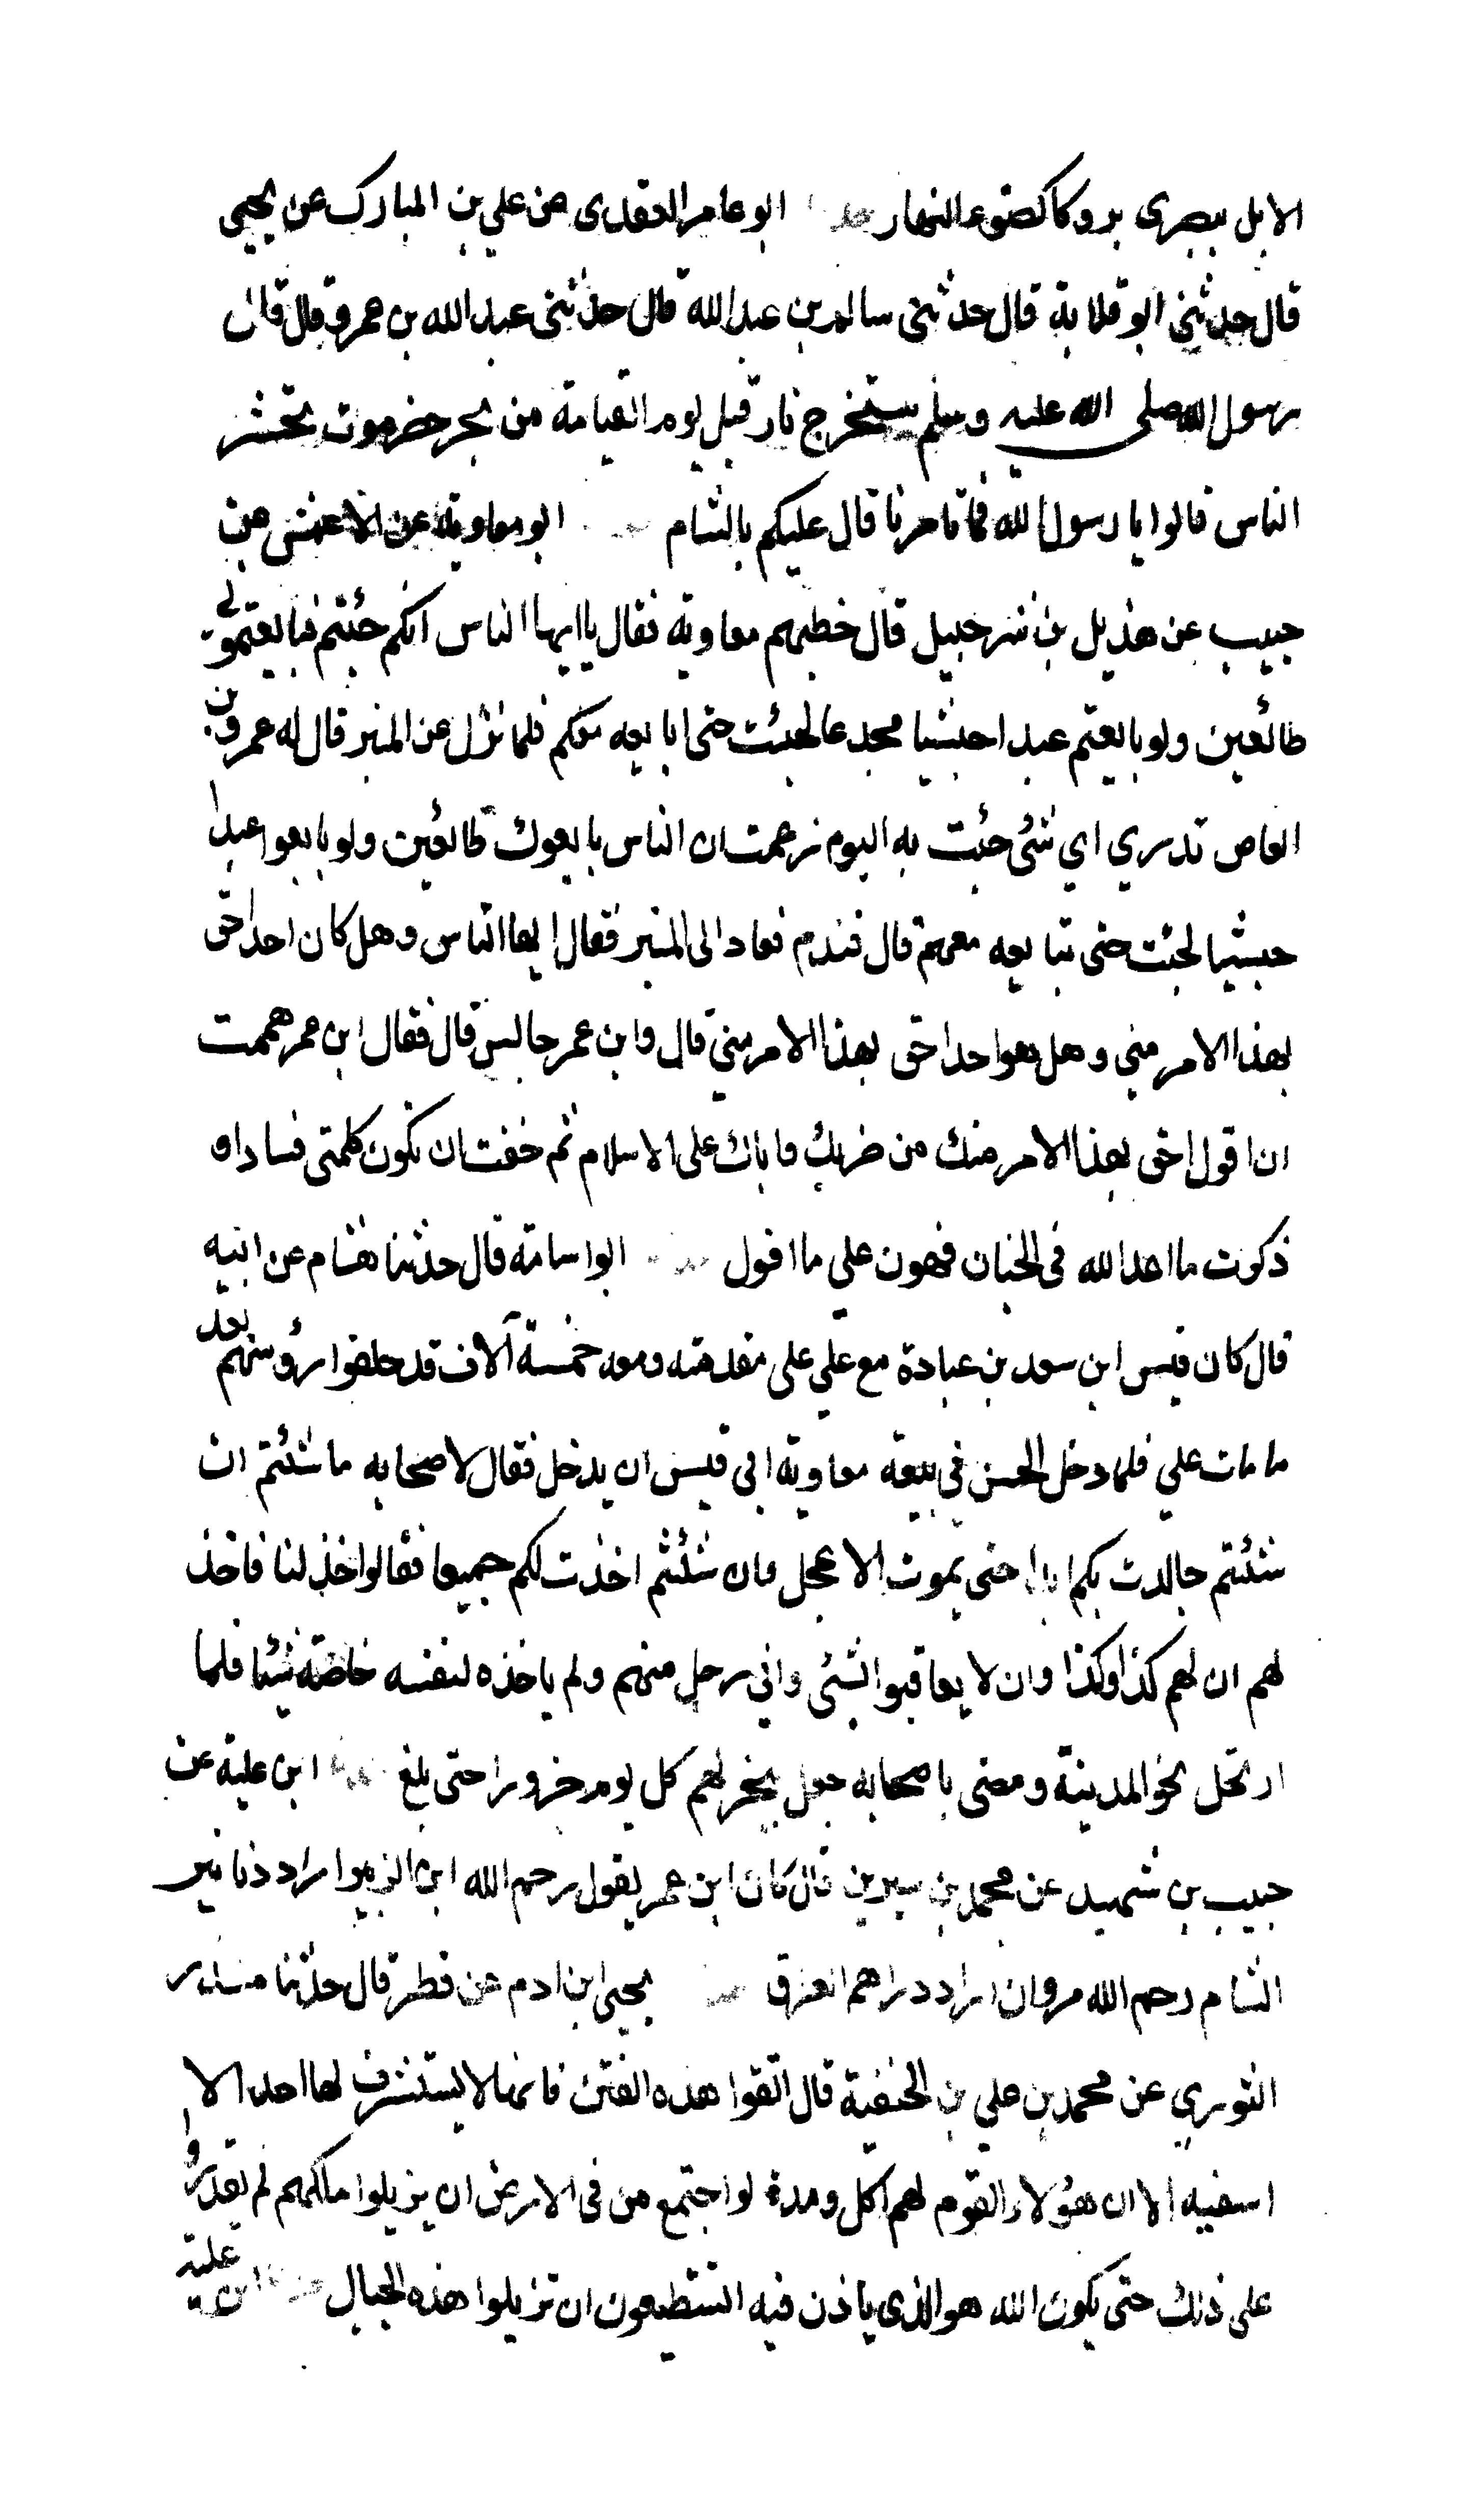 الابل ببصرى بروكا كضوء النهار حدثنا ابو عامر العقدى عن علي بن المبارك عن يحيى
قال حدثني ابو قلابة قال حدثنى سالم بن عبد الله قال حدثنى عبد الله بن عمر و قال قال
رسول الله صلى الله عليه وسلم ستخرج نار قبل يوم القيامة من بحر حضرموت تحشر
الناس قالوا يا رسول الله فما تامرنا قال عليكم بالشام ابو معاوية عن الاعمش عن
حبيب عن هذيل بن شرحبيل قال خطبهم معاوية فقال يا ايها الناس انكم جئتم فبايعتموني
طائعين ولو بايعتم عبدا حبشيا مجدعا لجئت حتى ابايعه معكم فلما نزل عن المنبر قال له عمرو بن
العاص تدري اي شئ جئت به اليوم زعمت ان الناس بايعوك طائعين ولو بايعوا عبدا
حبشيا لجئت حتى تبايعه معهم قال فندم فعاد الى المنبر فقال ايها الناس وهل كان احد احق
بهذا الامر مني وهل هو احد احق بهذا الامر مني قال وابن عمر جالس قال فقال ابن عمر هممت
ان اقول احق بهذا الامر منك من ضربك واباك على الاسلام ثم خفت ان تكون كلمتى فسادا و
ذكرت ما اعد الله فى الجنان فهون علي ما اقول ابو اسامة قال حدثنا هشام عن ابيه
قال كان قيس ابن سعد بن عبادة مع علي على مقدمته ومعه خمسة آلاف قد حلقوا رؤسهم بعد
ما مات علي فلما دخل الحسن في بيعة معاوية ابى قيس ان يدخل فقال لاصحابه ما شئتم ان
شئتم جالدت بكم ابدا حتى يموت الاعجل وان شئتم اخذت لكم جميعا فقالوا خذ لنا فاخذ
لهم ان لهم كذا وكذا وان لا يعاقبوا بشئ واني رجل منهم ولم ياخذه لنفسه خاصة شيئا فلما
ارتحل نحو المدينة ومضى باصحابه جعل ينحر لهم كل يوم جزورا حتى بلغ حدثنا ابن علية عن
حبيب بن شهيد عن محمد بن سيرين قال كان ابن عمر يقول رحم الله ابن الزبير اراد دنانير
الشام رحم الله مروان اراد دراهم العراق يحيى ابن ادم عن فطر قال حدثنا منذر
الثوري عن محمد بن علي بن الحنفية قال اتقوا هذه الفتن فانها لا يستشرف لها احد الا
استبقته الا ان هؤلاء القوم لهم اكل ومدة لو اجتمع من فى الارض ان يزيلوا ملكهم لم يقدروا
على ذلك حتى يكون الله هو الذى ياذن فيه اتستطيعون ان تزيلوا هذه الجبال ابن علية